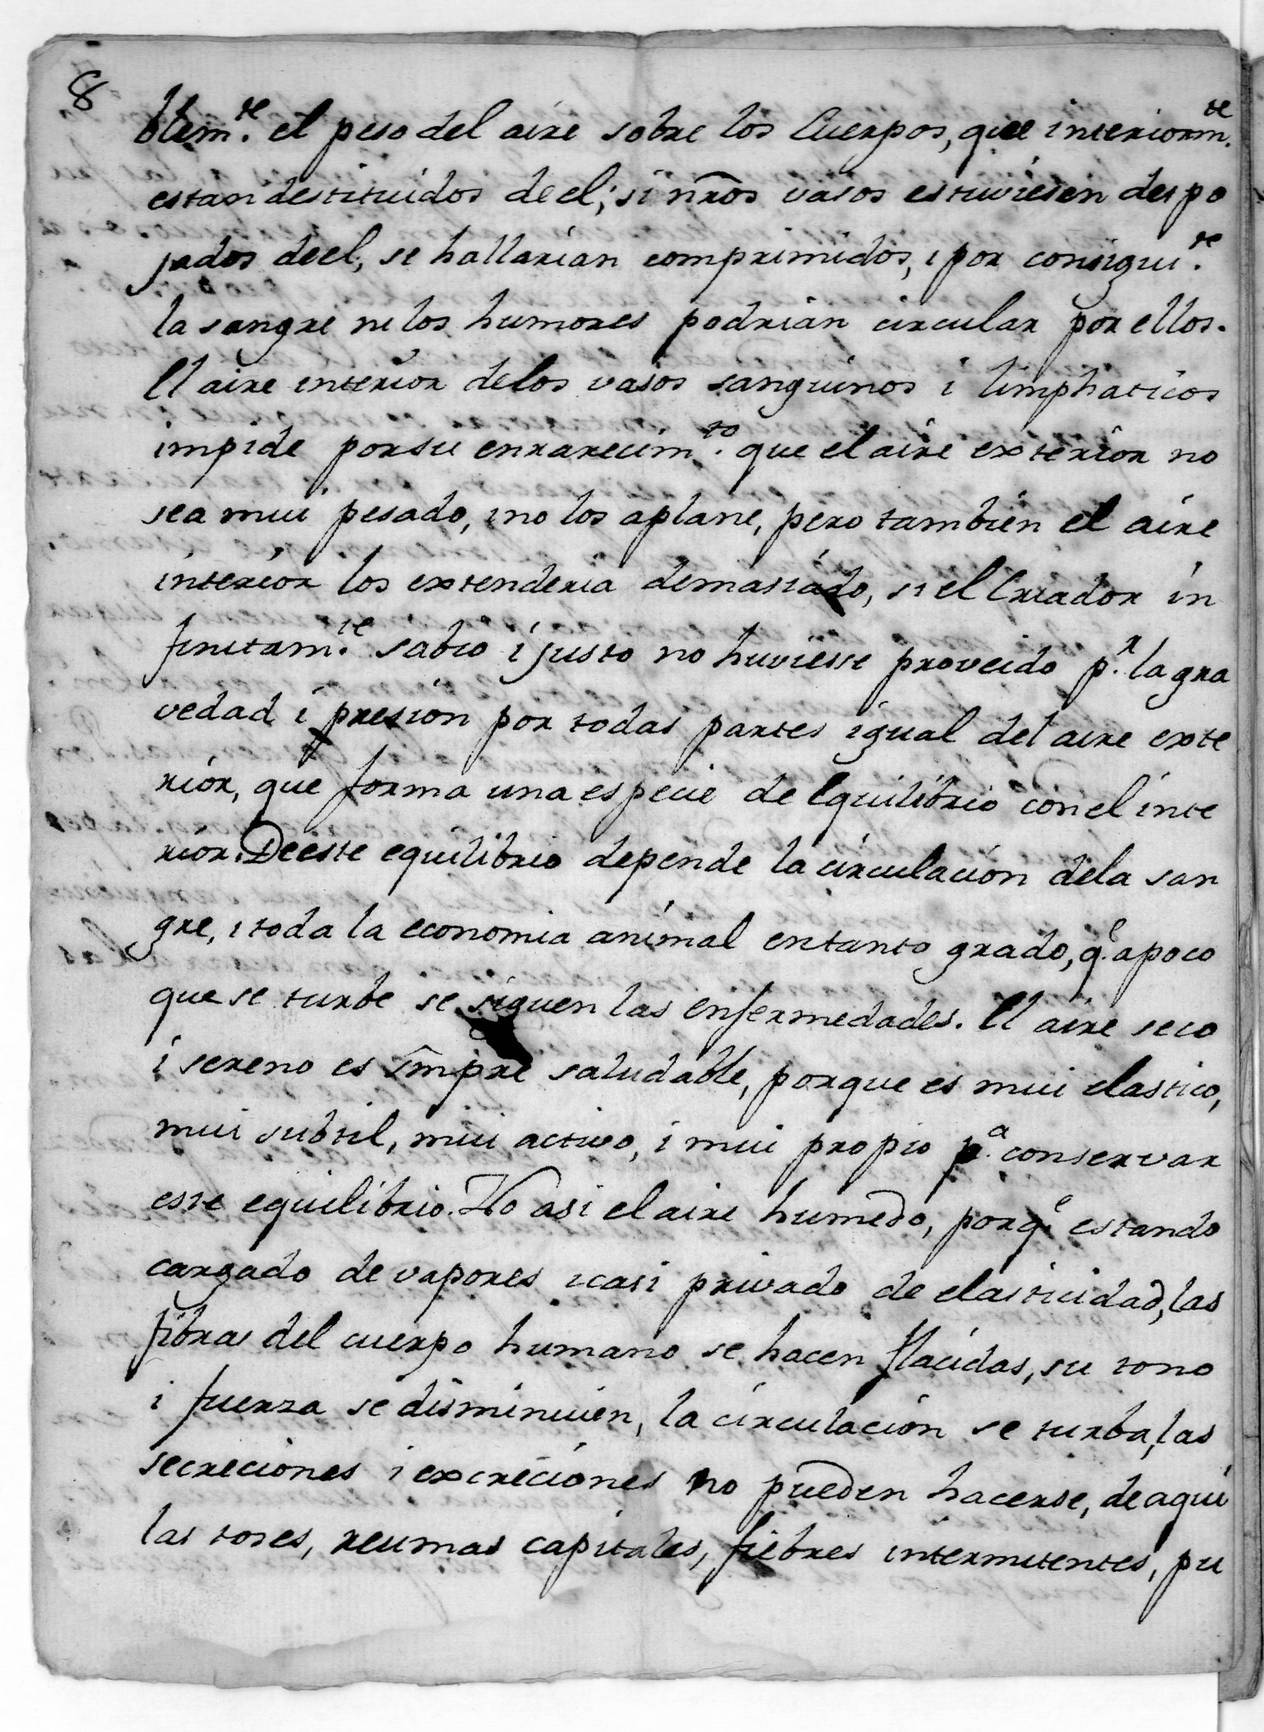 8
blem.te el peso del aire sobre los Cuerpos, que interiorm.te
estan destituidos de el; si nr̃os vasos estuviesen despo
jados de el, se hallarían comprimidos, i por consigui.te
la sangre ni los humores podrian circular por ellos.
El aire interior de los vasos sanguinos i limphaticos
impide por su enrarecim.to que el aire exterior no
sea mui pesado, i no los aplane, pero también el aire
interior los extenderia demasiádo, si el Criador in
finitam.te sabio i justo no huviesse proveido p.r la gra
vedad i presion por todas partes igual del aire exte
riór, que forma una especie de Equilibrio con el inte
rior. De este equilibrio depende la círculación de la san
gre, i toda la economia anímal en tanto grado, q.e apoco
que se turbe se siguen las enfermedades. El aire seco
i sereno es sm̃pre saludable, porque es mui elastico,
mui subtil, mui activo, i mui propio p.a conservar
este equilibrio. No asi el aire humedo, porq.e estando
cargado de vapores i casi privado de elasticidad, las
fibras del cuerpo humano se hacen flácidas, su tono
i fuerza se disminuien, la círculación se turba, las
secreciones i excreciónes no pueden hacerse, de aquí
las toses, reumas capitales, fiebres intermitentes, pu